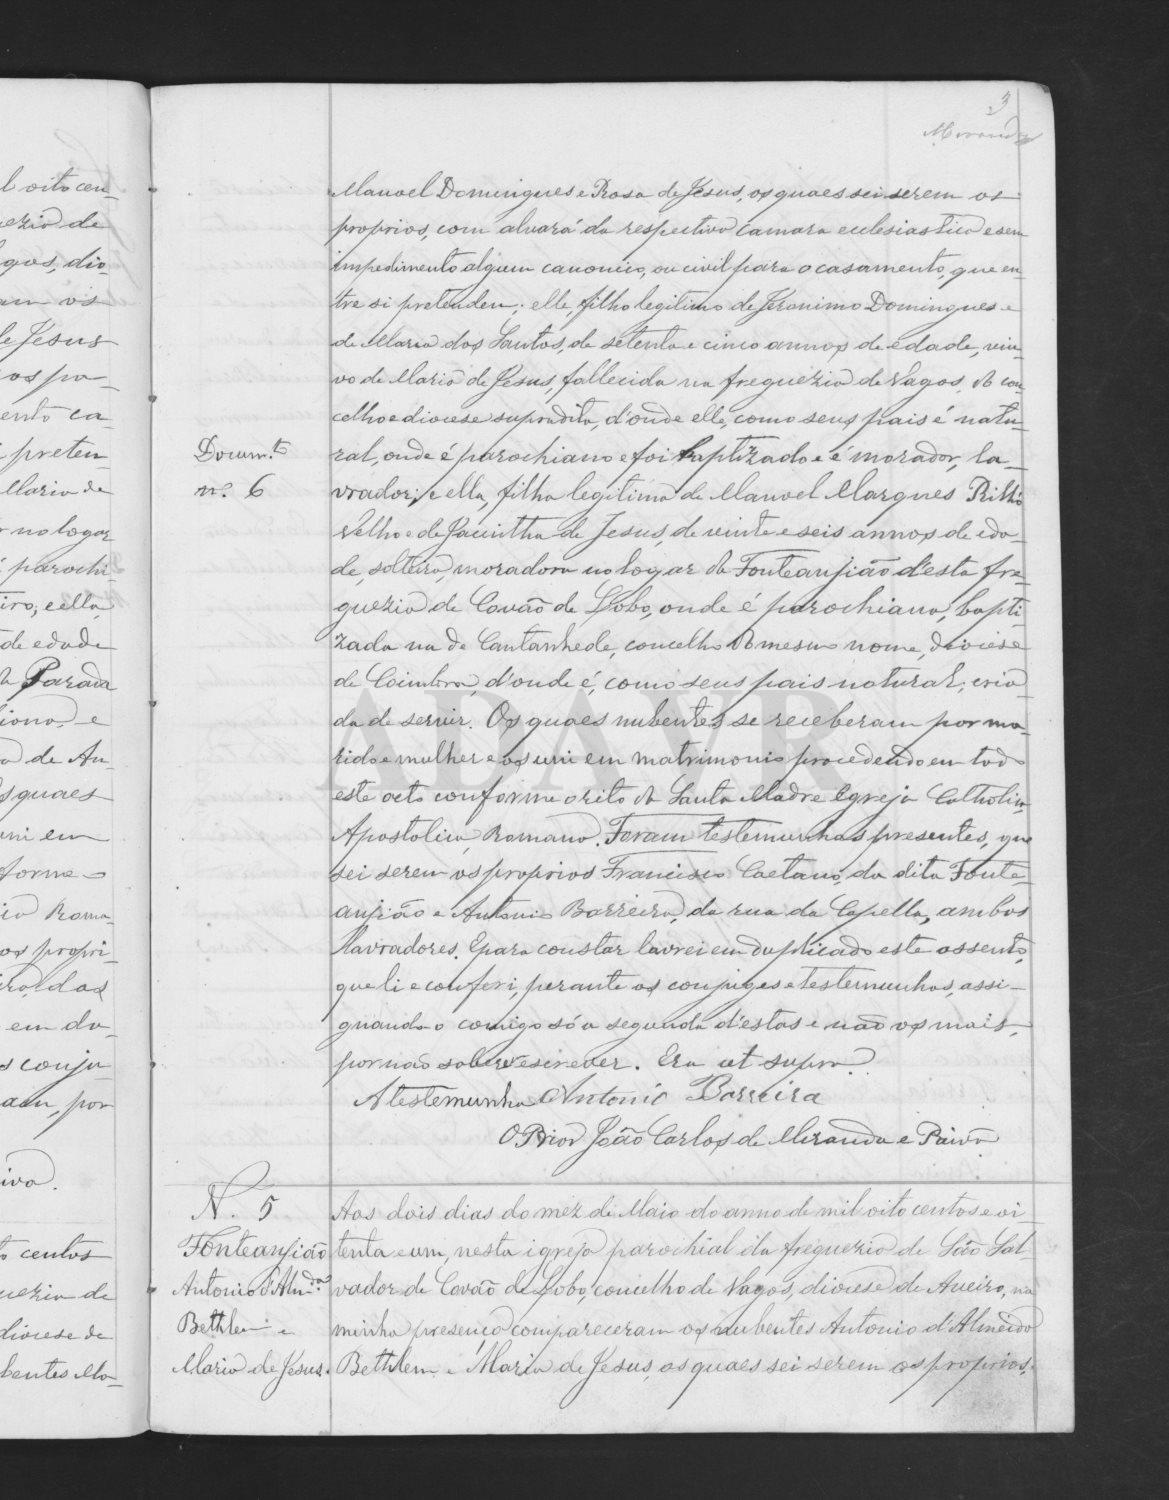 3
Miranda
Manoel Domingues e Rosa de Jesus, os quaes sei serem os
proprios, com alvará da respectiva camara ecclesiastica e sem
impedimento algum canonico, ou civil para o casamento, que en
tre si pretendem; elle, filho legitimo de Jeronimo Domingues e
de Maria dos Santos, de setenta e cinco annos de edade, viu-
vo de Maria de Jesus, fallecida na freguezia de Vagos, do con-
celho e diocese supradita, d'onde elle, como seus pais é natu-
Docum.to
n.º 6
ral, onde é parochiano e foi baptizado e é morador, la-
vrador; e ella, filha legitima de Manoel Marques
Velho e de Jacintha de Jesus, de vinte e seis annos de eda-
de, solteira, moradora no logar da Fonteanjião d'esta fre-
guezia de Covão de Lobo, onde é parochiana, bapti-
zada na de Cantanhede, concelho do mesmo nome, diocese
de Coimbra, d'onde é, como seus pais natural, cria-
da de servir. Os quaes nubentes se receberam por ma-
rido e mulher e os uni em matrimonio procedendo em todo
este acto conforme o rito da Santa Madre Egreja Catholica,
Apostolica, Romana. Foram testemunhas presentes, que
sei serem os proprios Francisco Caetano, da dita Fonte-
anjião e Antonio Barreira, da rua da Capella, ambos
lavradores. E para constar lavrei em duplicado este assento,
que li e conferi, perante os conjuges e testemunhas, assi-
gnando-o comigo só a segunda d'estas e não os mais,
por não saberem escrever. Era ut supra.
A testemunha Antonio Barreira
O Prior João Carlos de Miranda e Paiva
N. 5
Fonteanjião
Antonio d'Alm.da
Bethlem e
Maria de Jesus.
Aos dois dias do mez de Maio do anno de mil oito centos e oi-
tenta e um, nesta igreja parochial da freguezia de São Sal
vador de Covão de Lobo, concelho de Vagos, diocese de Aveiro, na
minha presença compareceram os nubentes Antonio d'Almeida
Bethlem e Maria de Jesus, os quaes sei serem os proprios,
ADAVR